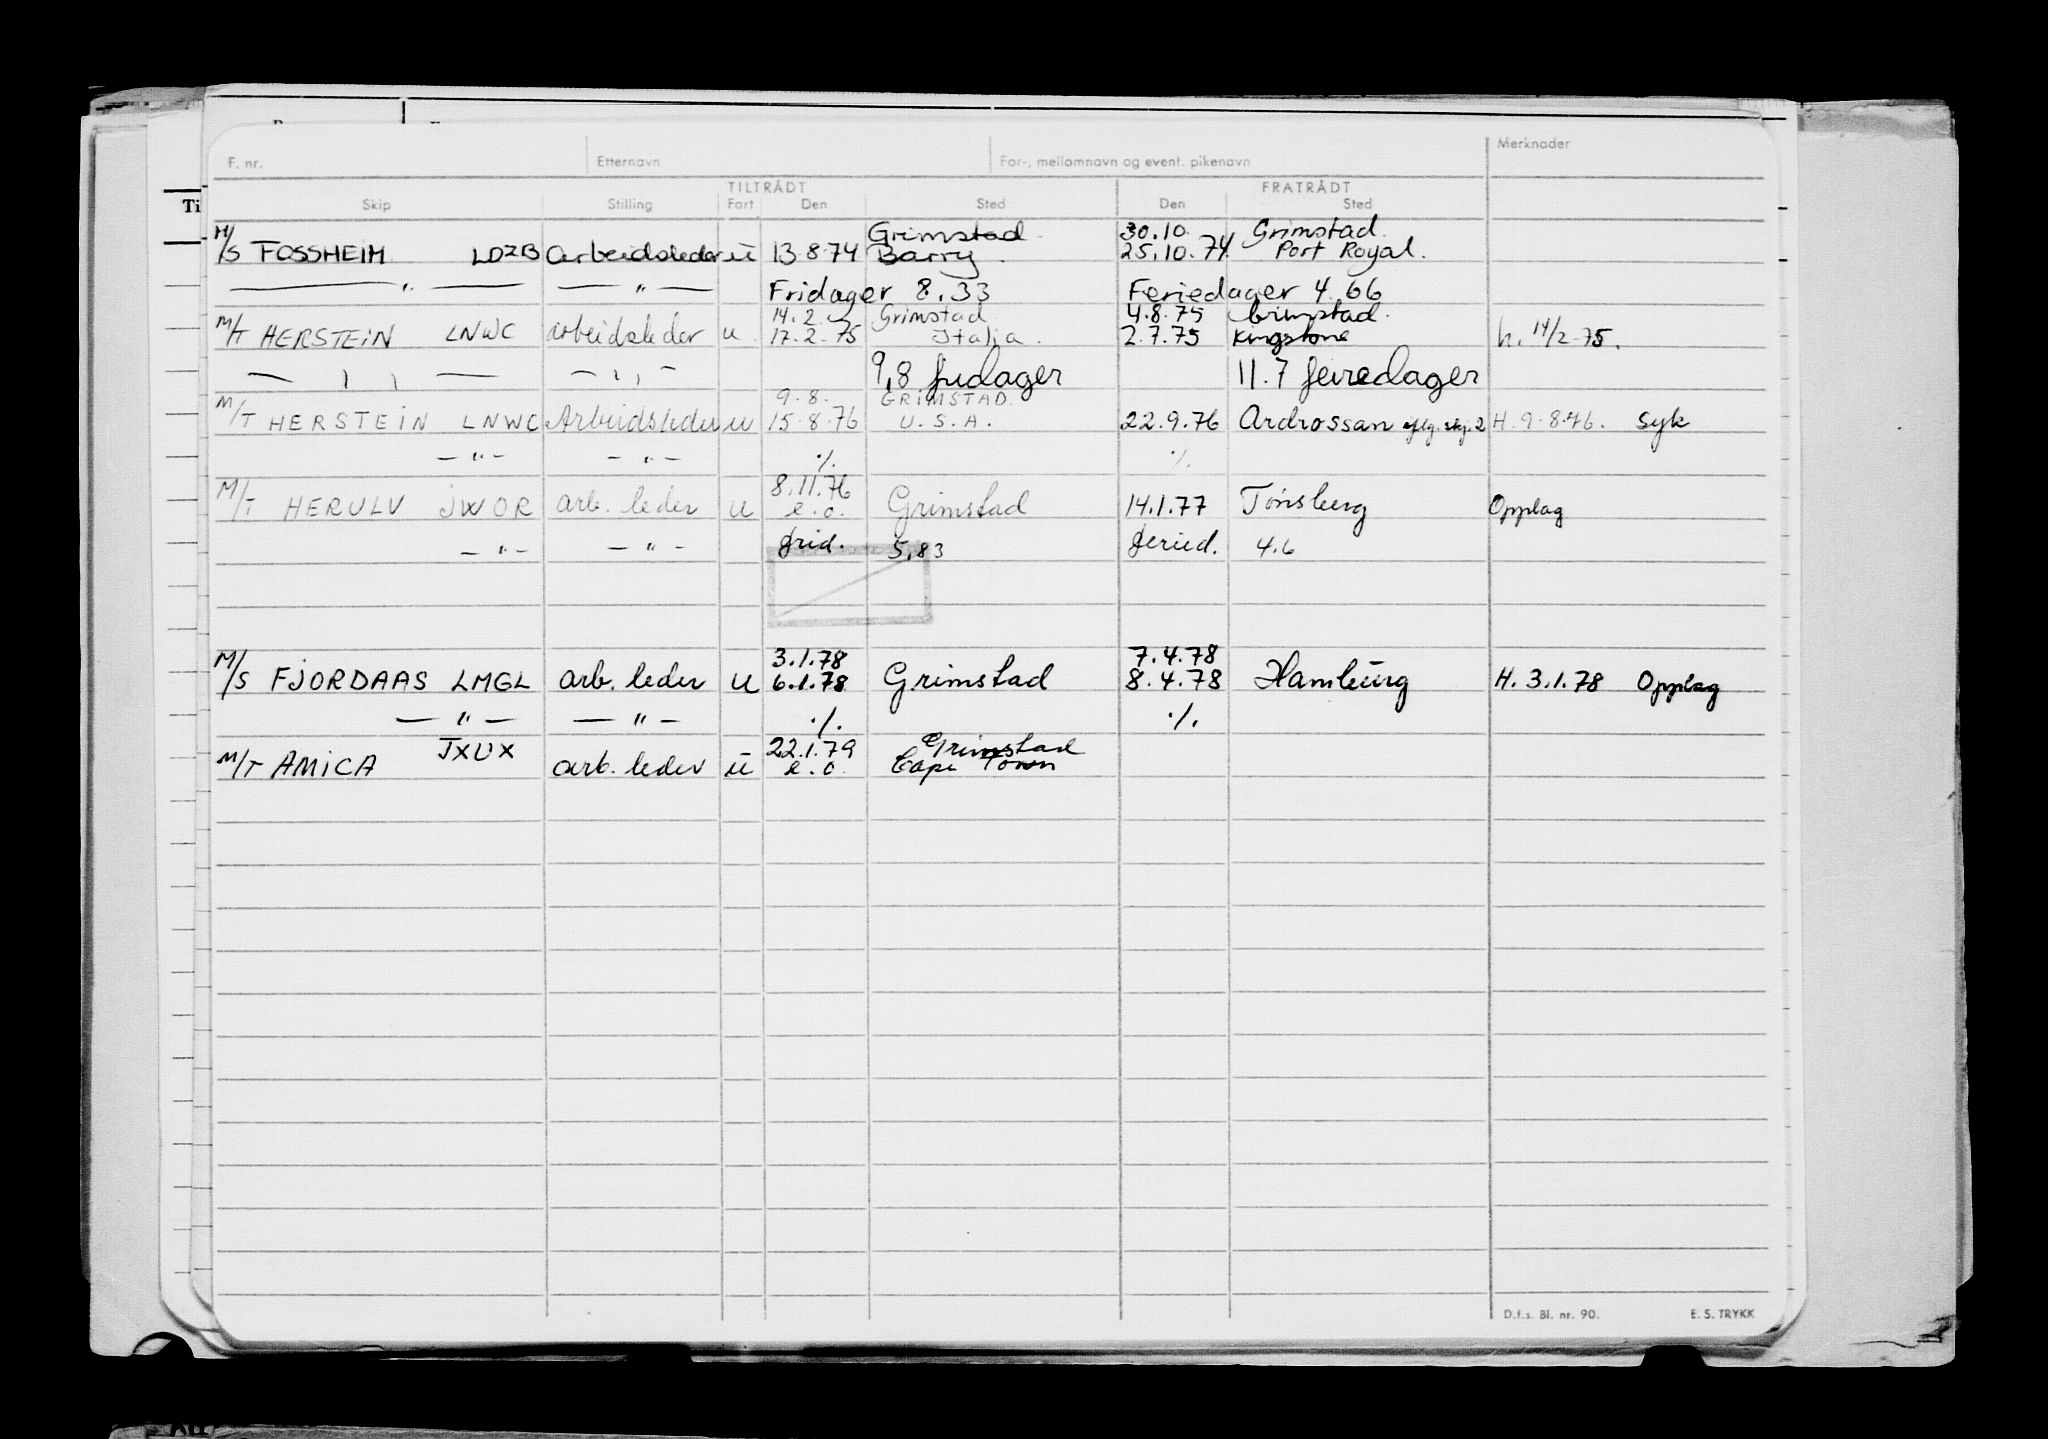 F. nr. Etternavn For-, mellomnavn og event. pikenavn Merknader
TILTRÅDT FRATRÅDT
Skip Stilling Fart Den Sted Den Sted
Grimstad 30.10. Grimstad.
M/S FOSSHEIM LDZB Arbeidsleder u 13.8.74 Barry. 25.10.74 Port Royal.
— " — — " — Fridager 8.33 Feriedager 4.66
14.2. Grimstad 4.8.75 Grimstad.
M/T HERSTEIN LNWC arbeidsleder u 17.2.75 Italia. 2.7.75 Kingstone h. 14/2-75.
— " — — " — 9,8 fridager 11.7 feiredager
9.8. GRIMSTAD.
M/T HERSTEIN LNWC Arbeidsleder u 15.8.76 U.S.A. 22.9.76 Ardrossan iflg. skj. 2 H. 9.8.76. Syk
— " — — " — ·/. ·/.
8.11.76
M/T HERULV JWOR arb. leder u e.o. Grimstad 14.1.77 Tønsberg Opplag
— " — — " — frid. 5,83 feried. 4.6
3.1.78 7.4.78
M/S FJORDAAS LMGL arb. leder u 6.1.78 Grimstad 8.4.78 Hamburg H. 3.1.78 Opplag
— " — — " — ·/. ·/.
JXUX 22.1.79 Grimstad
M/T AMICA arb. leder u e.o. Cape Town
D.f.s. Bl. nr. 90. E. S. TRYKK